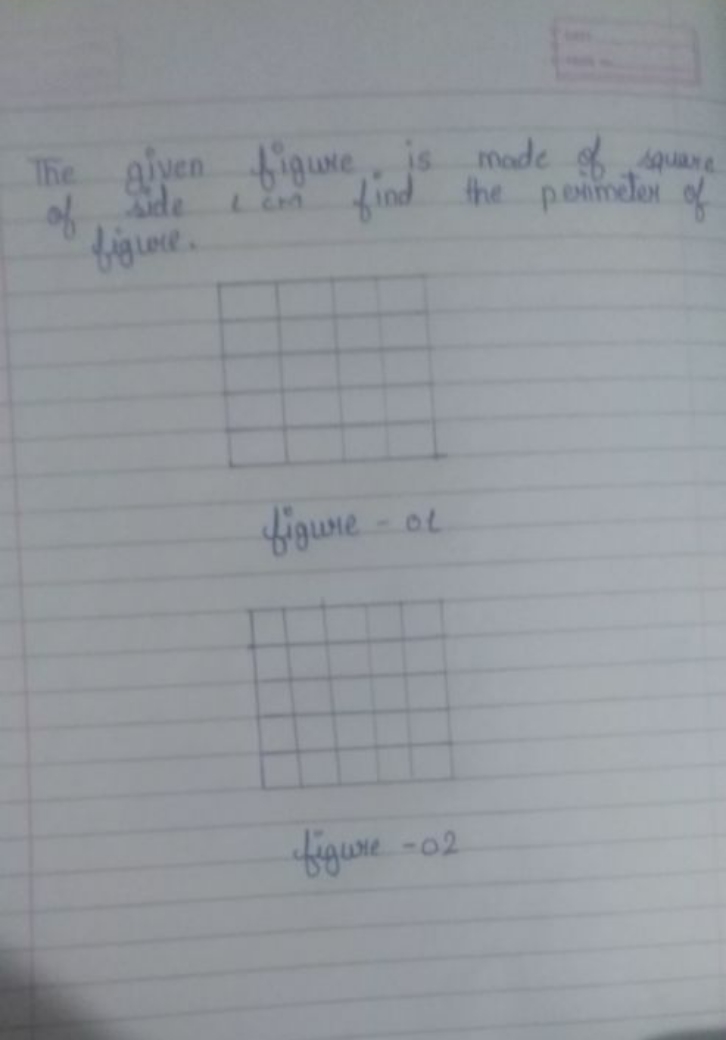 The given figure is made of square
of side 1 cm find the perimeter of
figure.
figure - 01
figure - 02